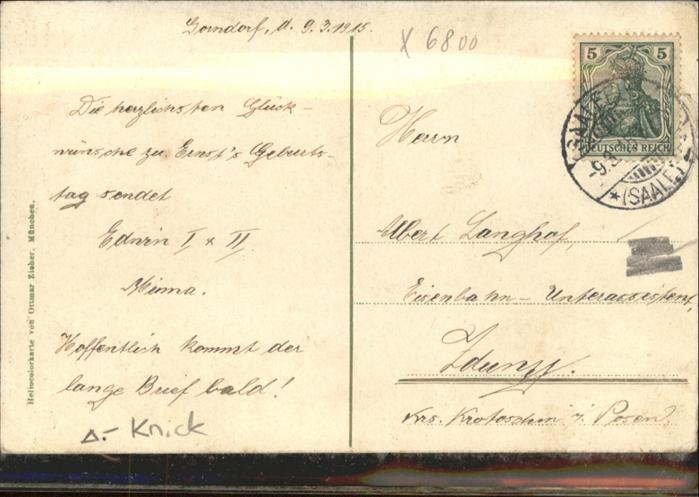 Gorndorf, d. 9.3.1915.
x 6800
Die herzlichsten Glück-
wünsche zu Ernst's Geburts-
tag sendet
Edwin I + II
Minna.
Hoffentlich kommt der
lange Brief bald!
Δ.- Knick
Heliocolorkarte von Ottmar Zieher, München.
5 5
DEUTSCHES REICH
SAALFELD
9.3.15
* (SAALE)
Herrn
Albert Langhof,
Eisenbahn-Unterassistent,
Zduny.
Krs. Krotoschin i. Posen